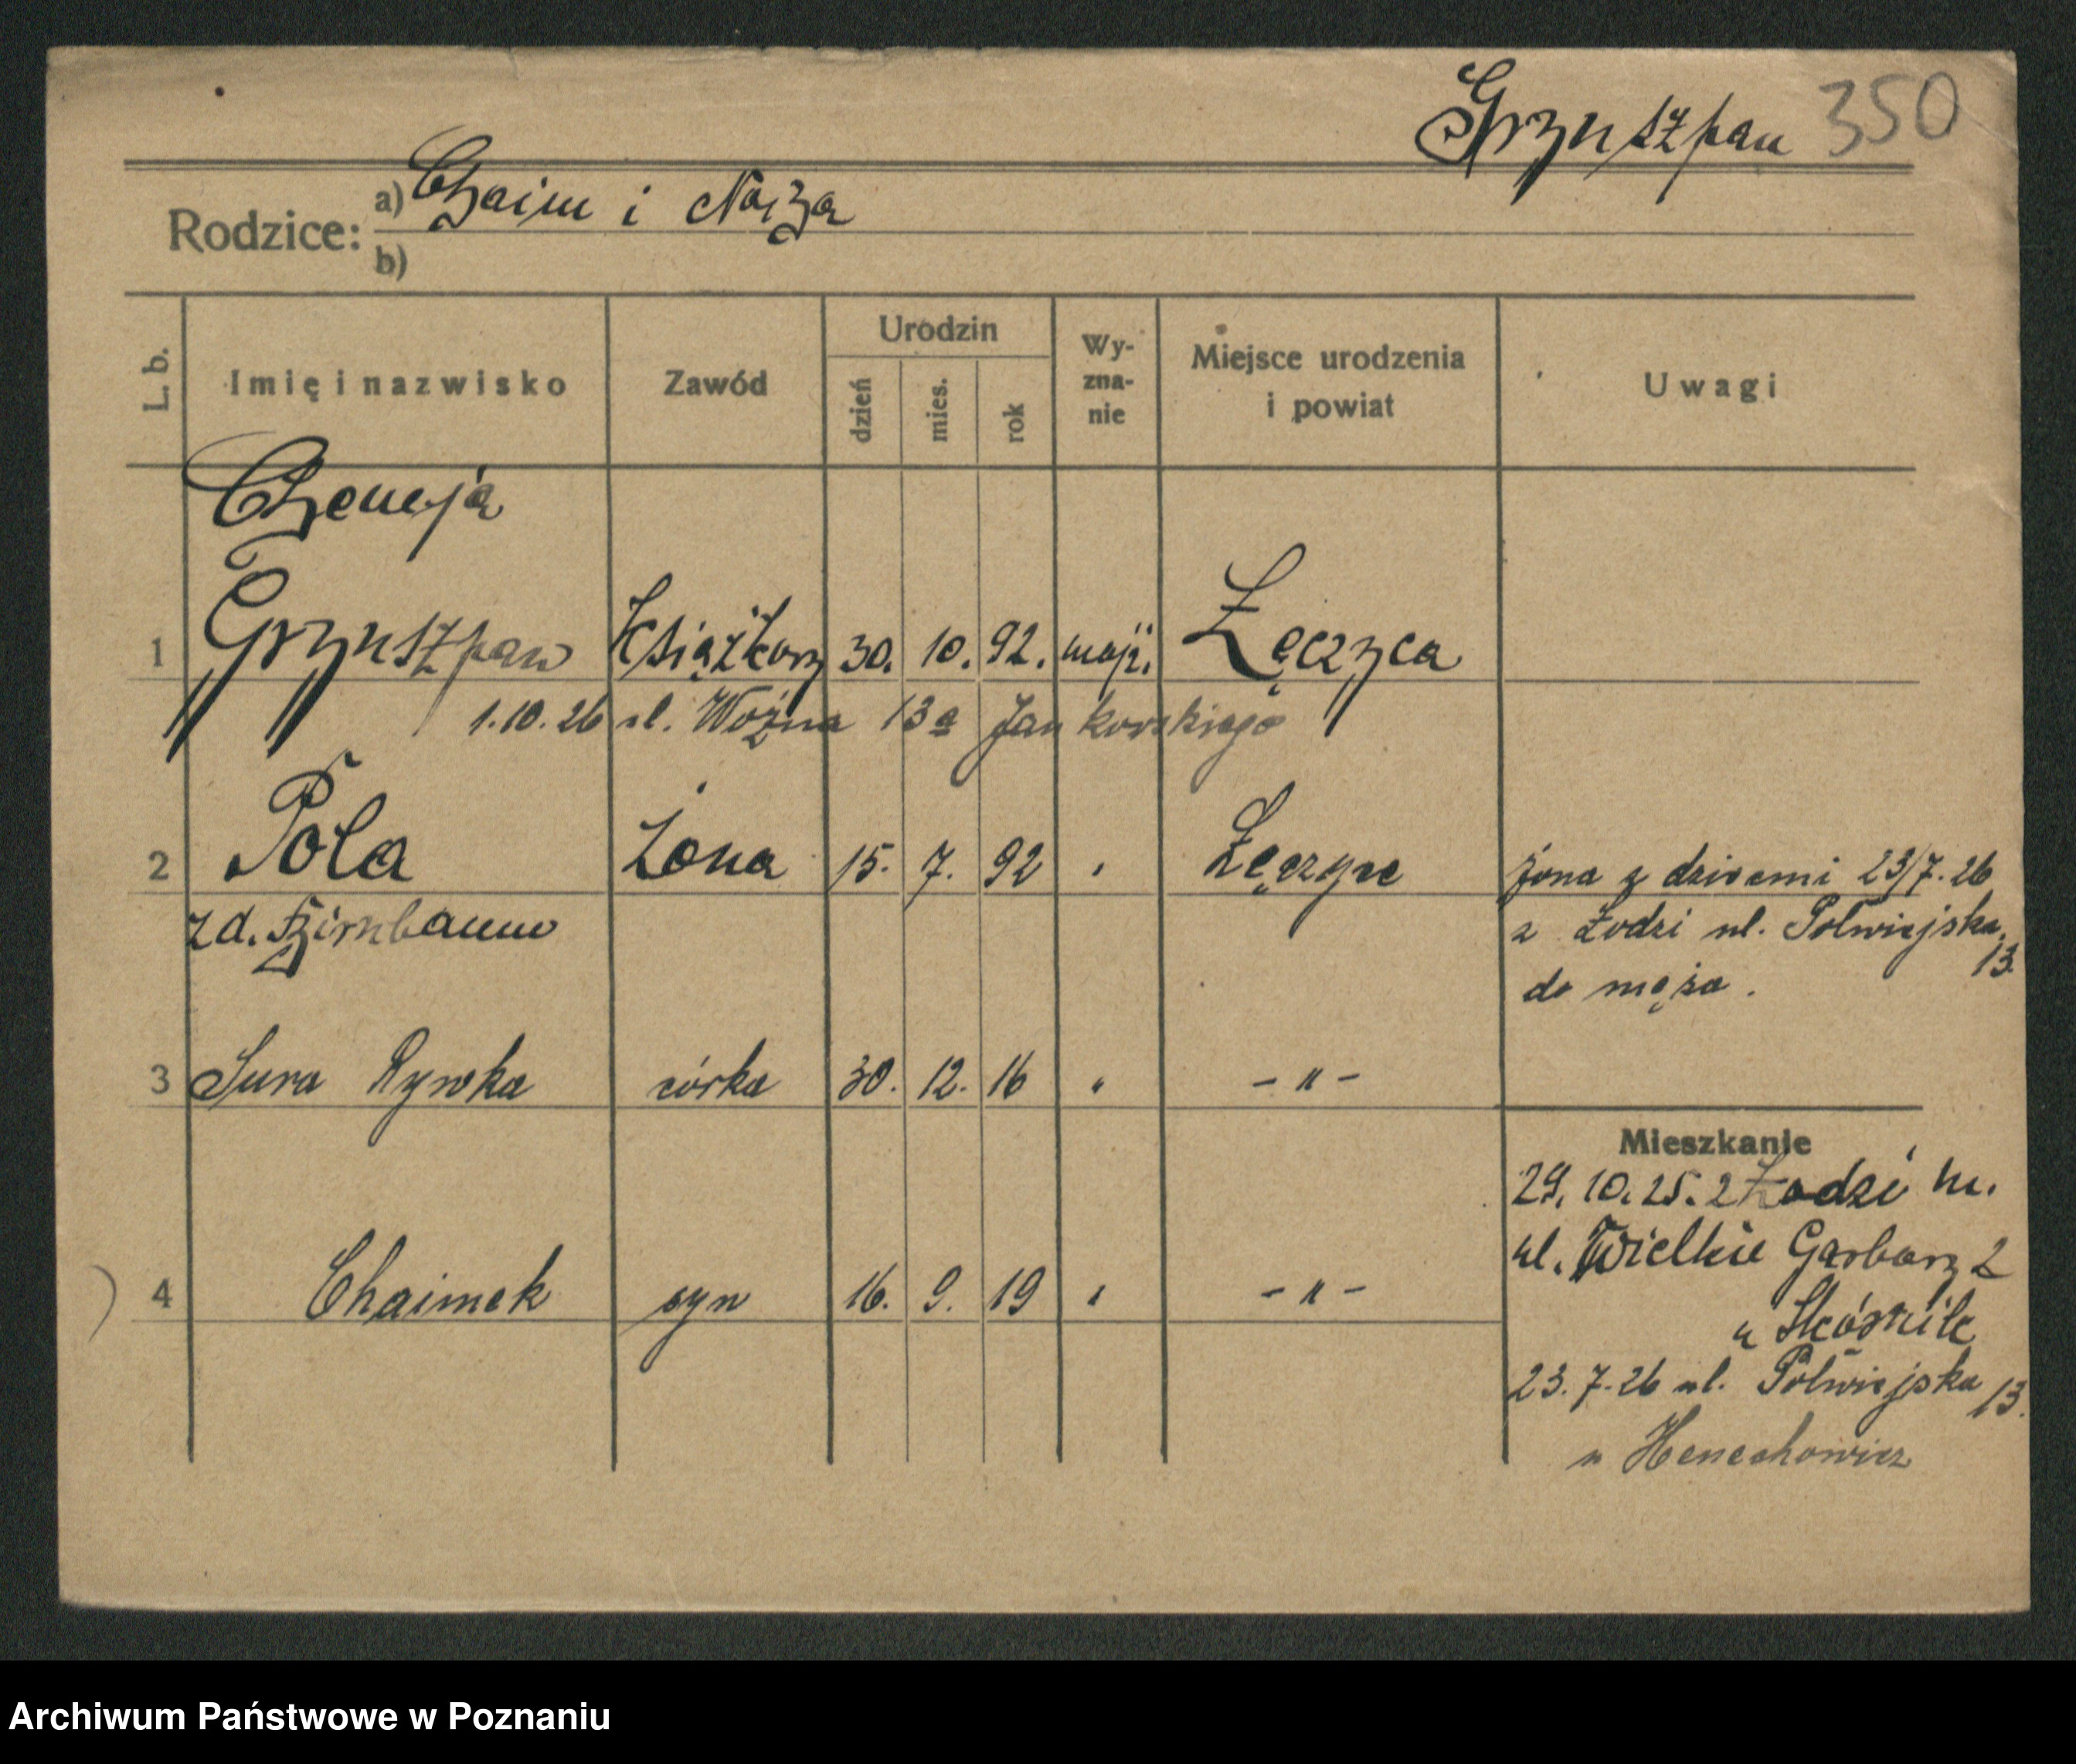 Grzuszpan 350
Rodzice: a) Chaim i
b)
L. b. Imię i nazwisko Zawód Urodzin dzień mies. rok Wy-zna-nie Miejsce urodzenia i powiat Uwagi
1 Grzuszpan 30. 10. 92. mojż. Łęczyca
1.10.26 ul. Woźna 13a Jankowskiego
2 Pola żona 15. 7. 92 " żona z dziećmi 23/7.26
zd. z Łodzi ul. Półwiejska 13.
do męża.
3 Sura Rywka córka 30. 12. 16 " - " -
Mieszkanie
29. 10. 25. z Łodzi
ul. Wielkie Garbary 2
4 Chaimek syn 16. 9. 19 " - " -
u
23. 7. 26 ul. Półwiejska 13.
u Henechowicz
Archiwum Państwowe w Poznaniu